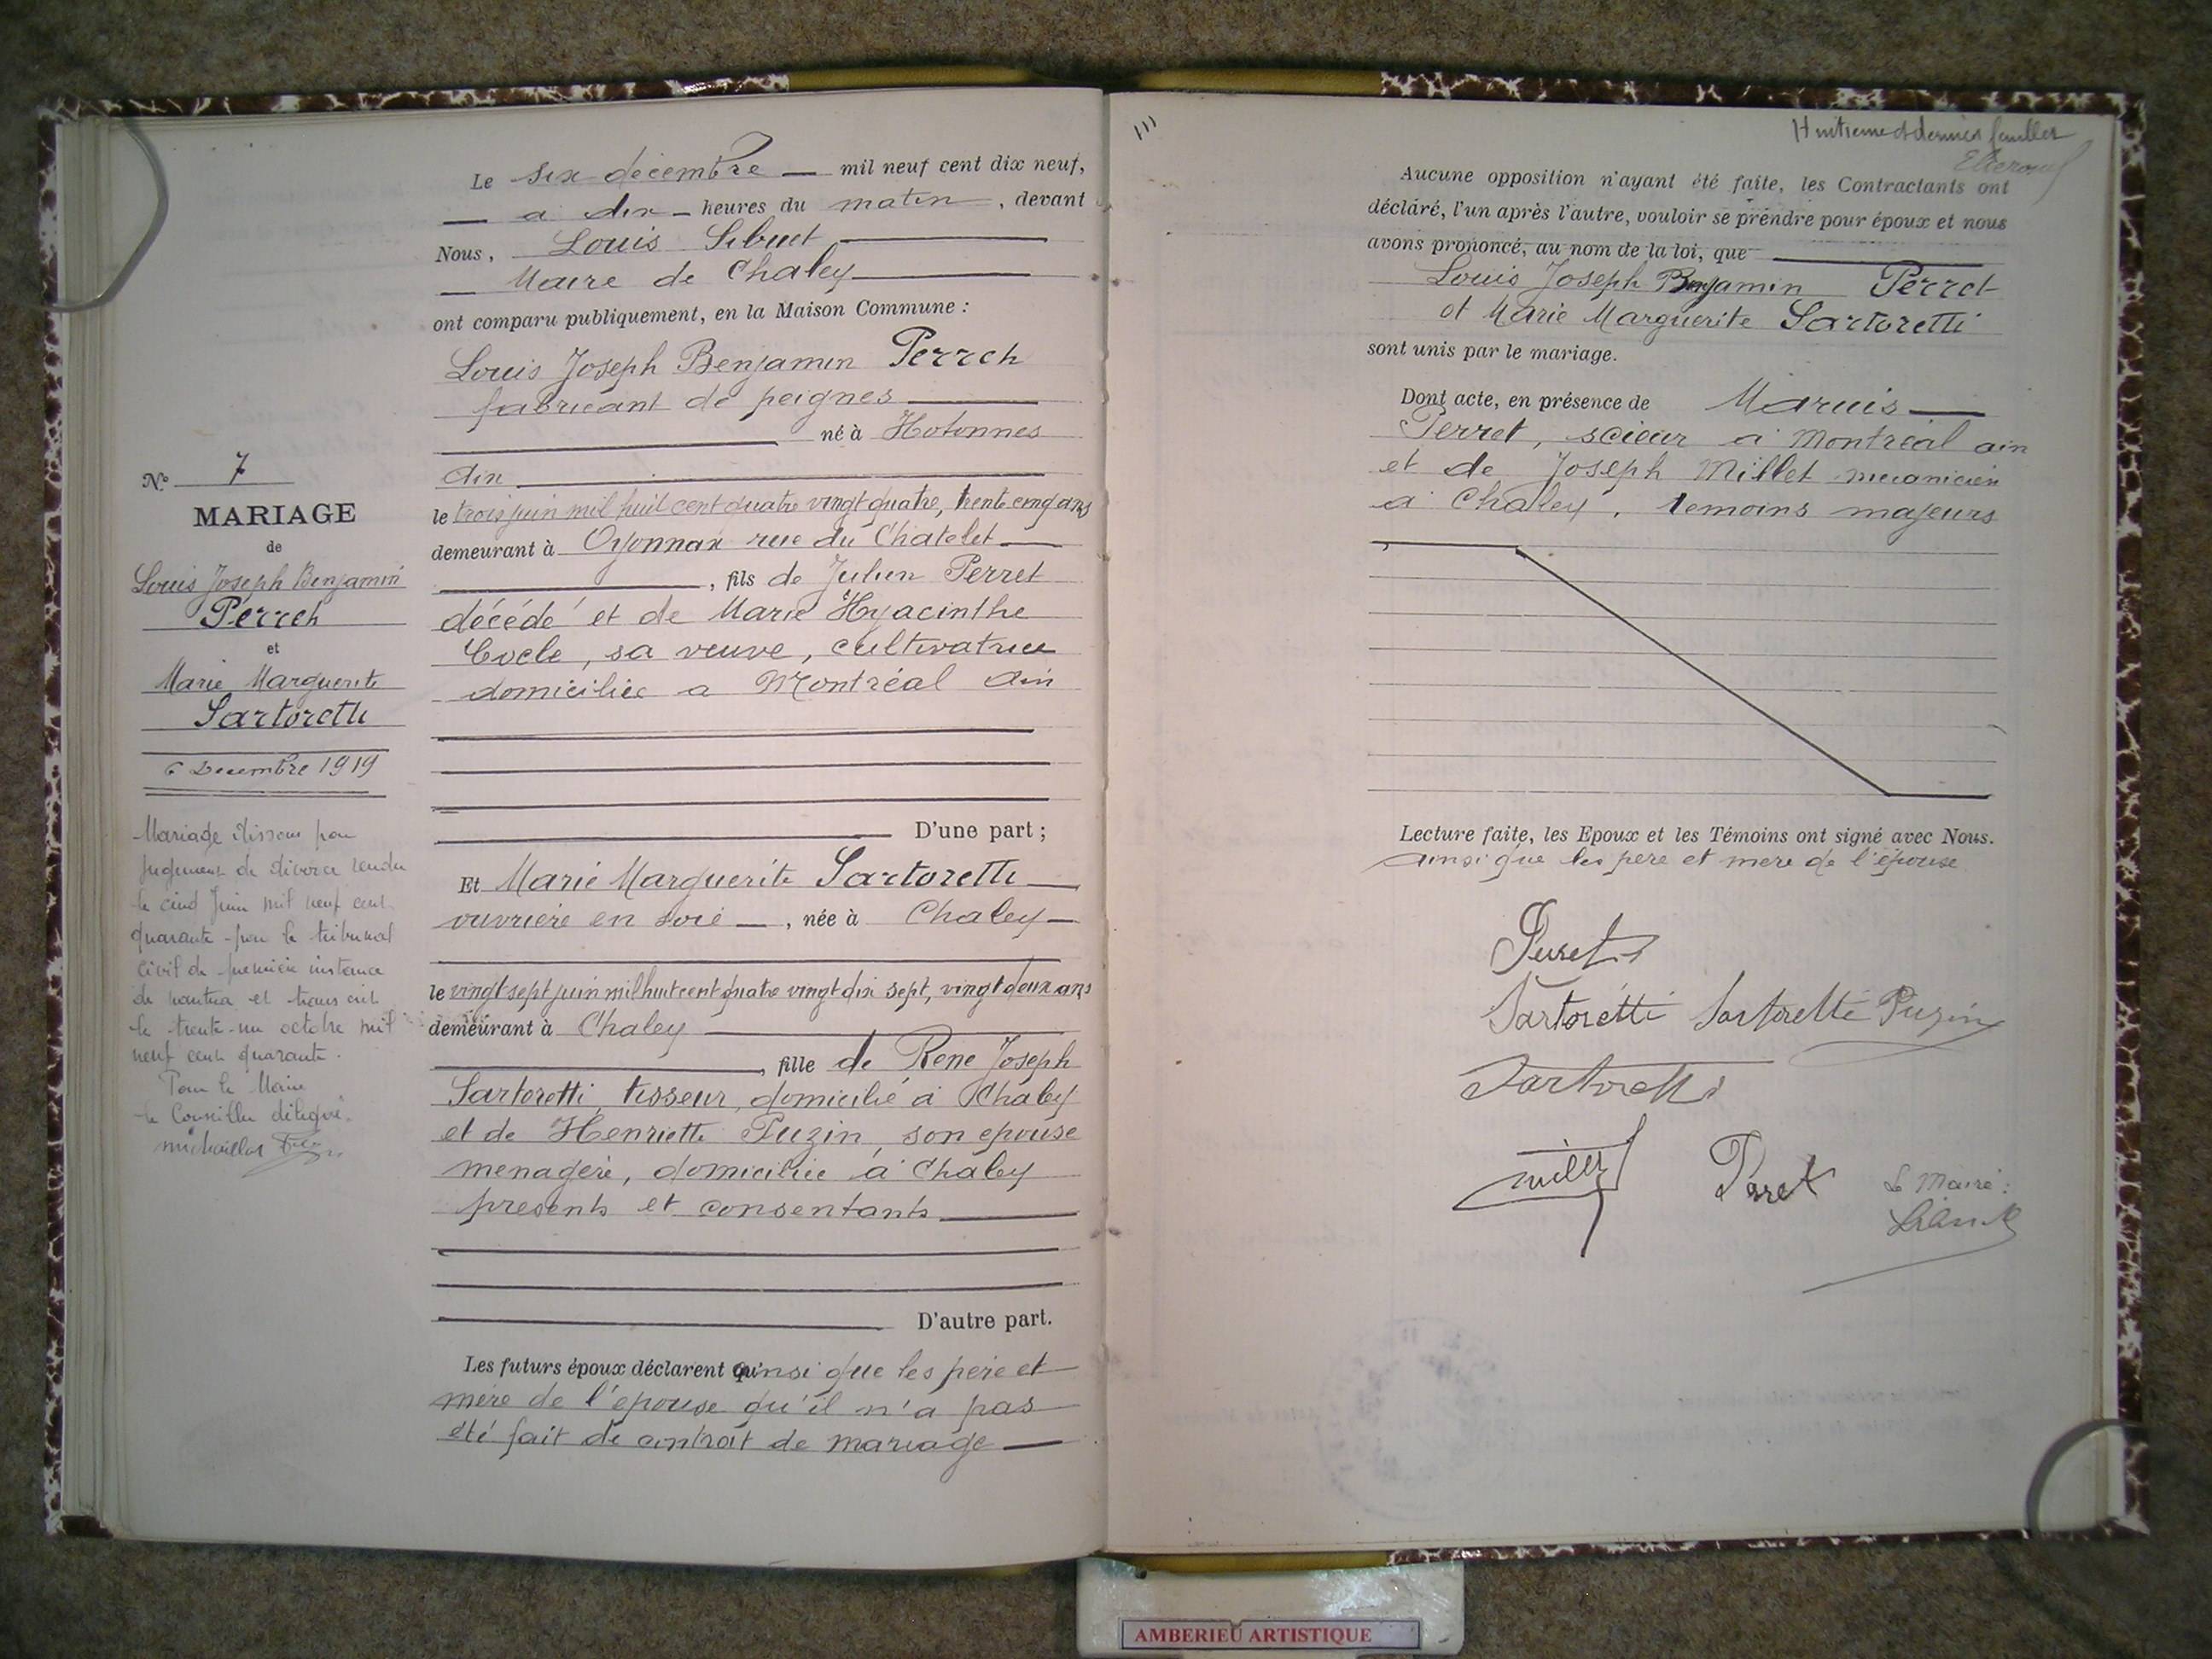 N° 7
MARIAGE
de
Louis Joseph Benjamin
Perret
et
Marie Marguerite
Sartoretti
6 Decembre 1919
Mariage dissous par
jugement de divorce rendu
le cinq Juin mil neuf cent
quarante par le tribunal
civil de première instance
de nantua et transcrit
le trente-un octobre mil
neuf cent quarante.
Pour le Maire
le Conseiller délégué.
Le six décembre mil neuf cent dix neuf,
a dix heures du matin, devant
Nous, Louis Sibuet
Maire de Chaley
ont comparu publiquement, en la Maison Commune :
Louis Joseph Benjamin Perret
fabricant de peignes
né à Hotonnes
Ain
le trois juin mil huit cent quatre vingt quatre, trente cinq ans
demeurant à Oyonnax rue du Chatelet
, fils de Julien Perret
décédé et de Marie Hyacinthe
Cocle, sa veuve, cultivatrice
domiciliée a Montréal Ain
D'une part ;
Et Marie Marguerite Sartoretti
ouvrière en soie, née à Chaley
le vingt sept juin mil huit cent quatre vingt dix sept, vingt deux ans
demeurant à Chaley
, fille de René Joseph
Sartoretti, tisseur, domicilié à Chaley
et de Henriette Puzin, son epouse
menagère, domiciliée à Chaley
présents et consentants
D'autre part.
Les futurs époux déclarent ainsi que les père et
mère de l'épouse qu'il n'a pas
été fait de contrat de mariage
111
Huitième et dernier feuillet
Aucune opposition n'ayant été faite, les Contractants ont
déclaré, l'un après l'autre, vouloir se prendre pour époux et nous
avons prononcé, au nom de la loi, que
Louis Joseph Benjamin Perret
et Marie Marguerite Sartoretti
sont unis par le mariage.
Dont acte, en présence de Marius
Perret, scieur à Montréal ain
et de Joseph Millet mecanicien
à Chaley, temoins majeurs
Lecture faite, les Epoux et les Témoins ont signé avec Nous.
ainsi que les père et mere de l'épouse
Perret
Sartoretti Sartoretti Puzin
Sartoretti
Millet Perret Le Maire :
Sibuet
AMBERIEU ARTISTIQUE